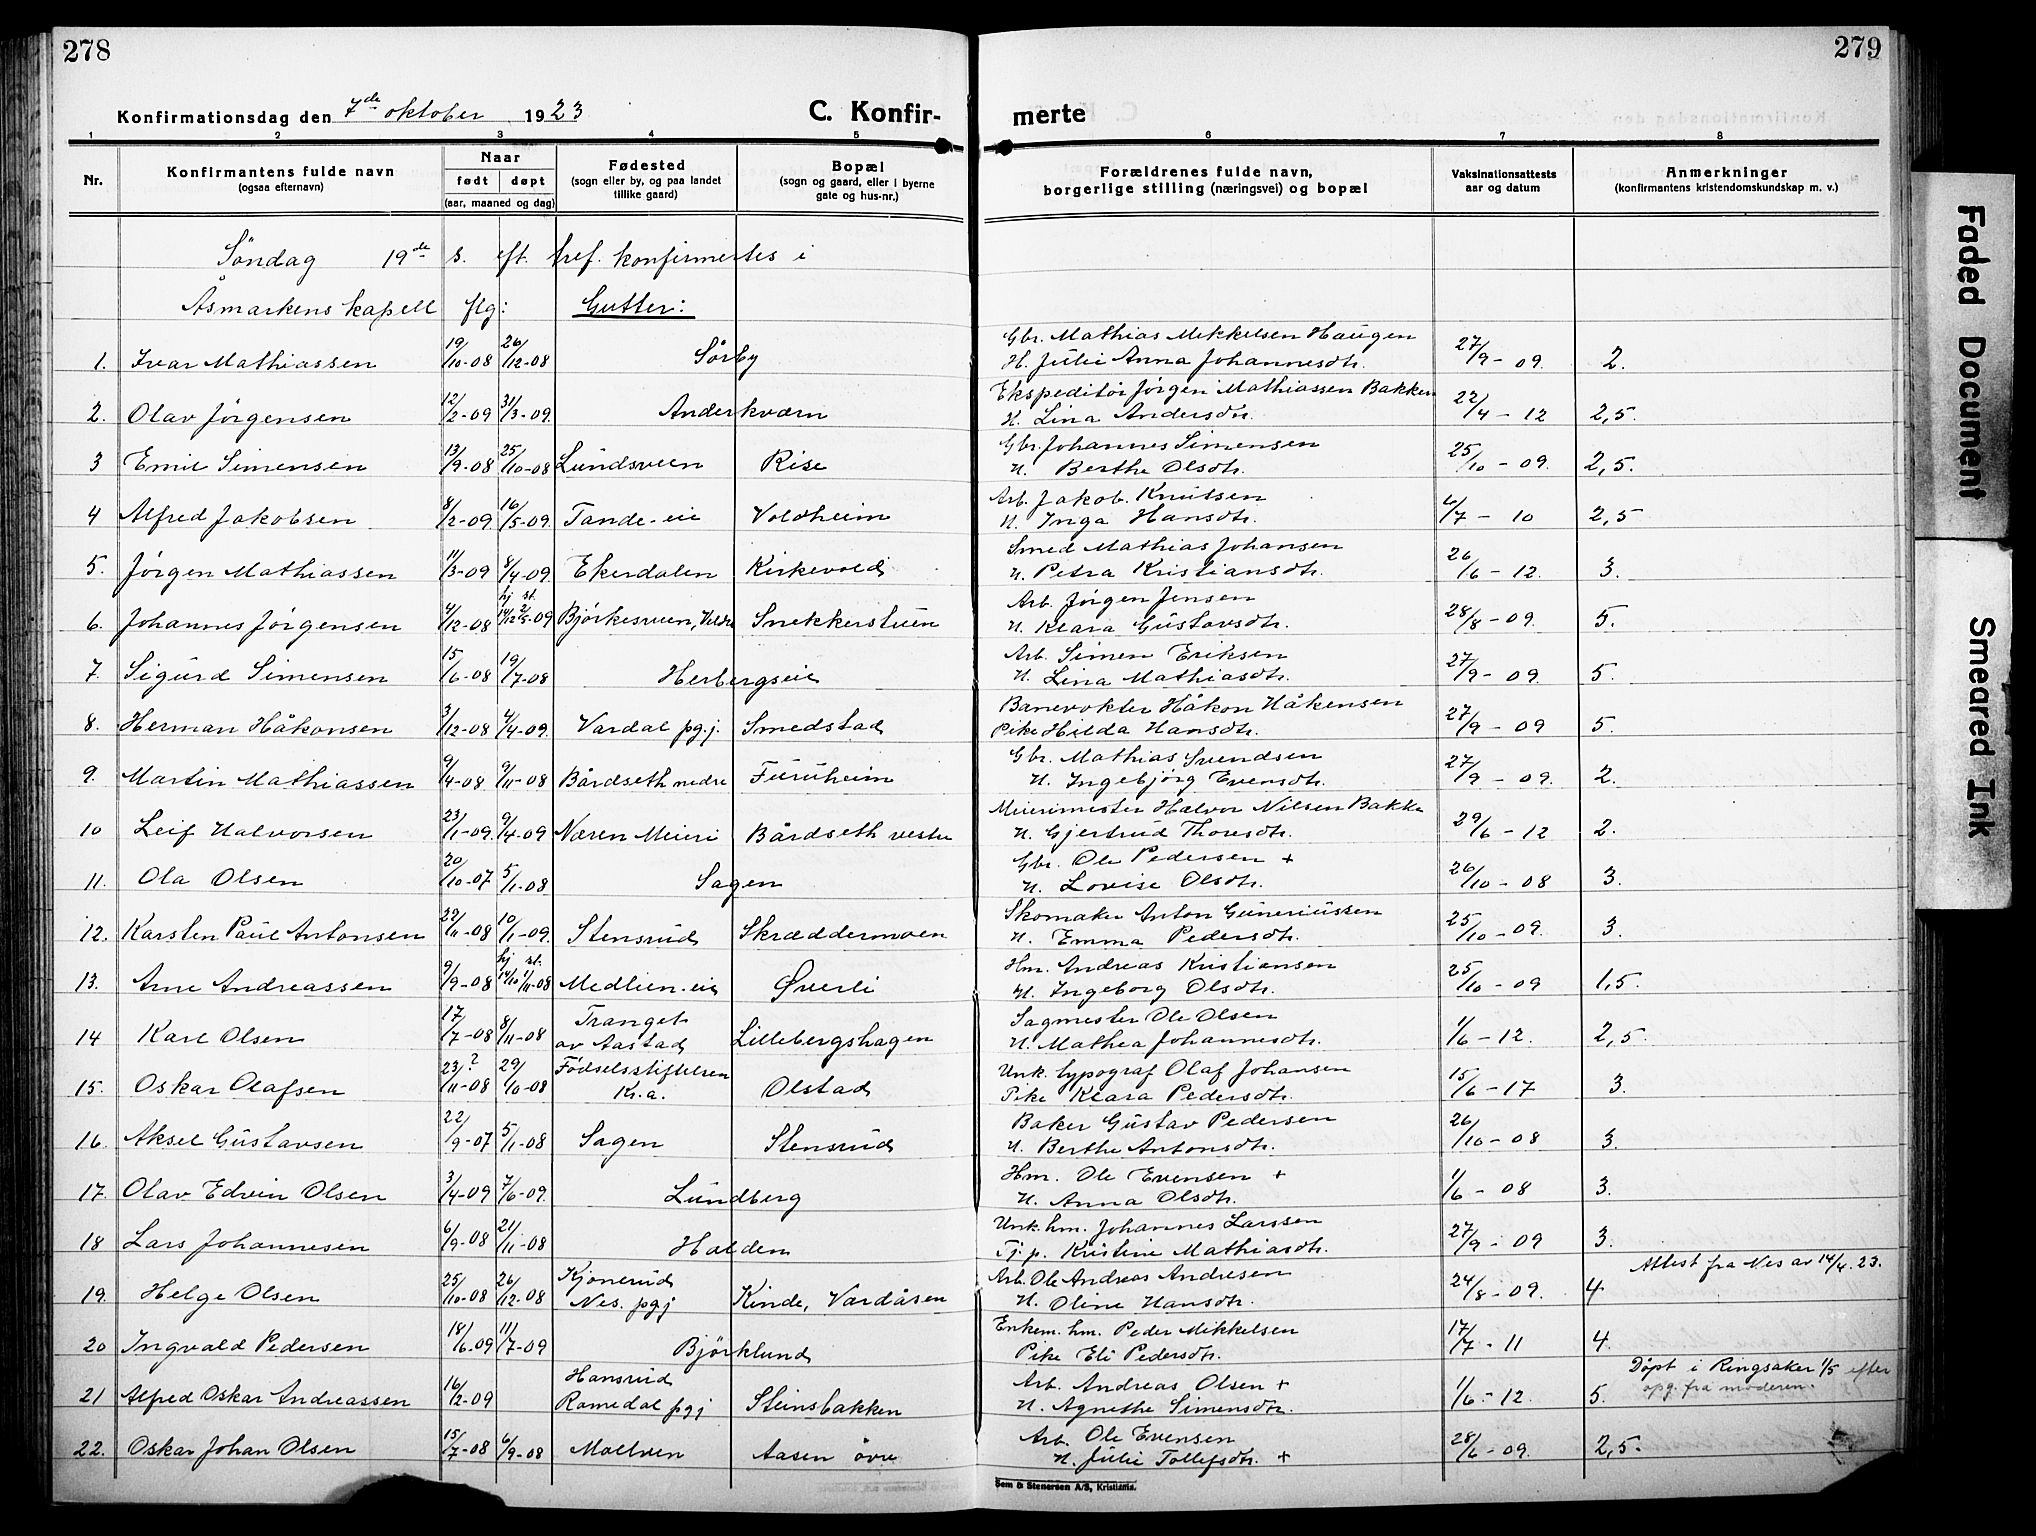 278
279
Konfirmationsdag den 7de oktober 1923
C. Konfir-
merte
1 2 3 4 5 6 7 8
Nr.
Konfirmantens fulde navn
(ogsaa efternavn)
Naar
født døpt
(aar, maaned og dag)
Fødested
(sogn eller by, og paa landet
tillike gaard)
Bopæl
(sogn og gaard, eller i byerne
gate og hus-nr.)
Forældrenes fulde navn,
borgerlige stilling (næringsvei) og bopæl
Vaksinationsattests
aar og datum
Anmerkninger
(konfirmantens kristendomskundskap m. v.)
Søndag 19de s. eft. tref. konfirmertes i
Åsmarkens kapell flg: Gutter:
1. Ivar Mathiassen 19/10-08 26/12-08 Sørby Gbr. Mathias Mikkelsen Haugen 27/9-09. 2.
H. Julie Anna Johannesdtr.
2. Olav Jørgensen 12/2-09 31/3-09. Anderkværn Ekspeditør Jørgen Mathiassen Bakken 22/4-12 2,5.
H. Lina Andersdtr.
3 Emil Simensen 13/9-08 25/10-08 Lundsveen Rise Gbr. Johannes Simensen 25/10-09. 2,5.
H. Berthe Olsdtr.
4 Alfred Jakobsen 8/2-09. 16/5-09. Tande-eie Voldheim Arb. Jakob Knutsen 4/7-10 2,5
H. Inga Hansdtr.
5. Jørgen Mathiassen 11/3-09 8/4-09. Ekerdalen Kirkevold Smed Mathias Johansen 26/6-12. 3.
H. Petra Kristiansdtr.
hj st.
6. Johannes Jørgensen 4/12-08 14/12 2/5-09 Bjørkesveen, Veldre Snekkerstuen Arb. Jørgen Jensen 28/8-09. 5.
H. Klara Gustavsdtr.
7. Sigurd Simensen 15/6-08 19/7-08 Herbergseie Arb. Simen Eriksen 27/9-09. 5.
H. Lina Mathiasdtr.
8. Herman Håkonsen 3/12-08 4/4-09. Vardal pgj. Smedstad Banevokter Håkon Håkensen 27/9-09 5.
Pike Hilda Hansdtr.
9. Martin Mathiassen 9/4-08 9/11-08 Bårdseth nedre Furuheim Gbr. Mathias Svendsen 27/9-09. 2.
H. Ingebjørg Evensdtr.
10 Leif Halvorsen 23/1-09. 9/4-09 Næren Meieri Bårdseth vestre Meierimester Halvor Nilsen Bakke 29/6-12 2.
H. Gjertrud Thoresdtr.
11. Ola Olsen 20/10-07 5/1-08 Sagen Gbr. Ole Pedersen + 26/10-08 3.
H. Lovise Olsdtr.
12. Karsten Paul Antonsen 22/11-08 10/1-09. Stensrud Skræddermoen Skomaker Anton Guneriussen 25/10-09. 3.
H. Emma Pedersdtr.
hj st.
13. Arne Andreassen 9/9-08 14/10 1/11-08 Medlien-eie Øverli Hm. Andreas Kristiansen 25/10-09 1,5.
H. Ingeborg Olsdtr.
14 Karl Olsen 17/7-08 8/11-08 Tranget av Aastad Lillebergshagen Sagmester Ole Olsen 1/6-12. 2,5.
H. Mathea Johannesdtr.
15. Oskar Olafsen 23?/11-08 29/10-08 Fødselsstiftelsen Kr.a. Olstad Unk. typograf Olaf Johansen 15/6-17 3.
Pike Klara Pedersdtr.
16. Aksel Gustavsen 22/9-07 5/1-08 Sagen Stensrud Baker Gustav Pedersen 26/10-08 3.
H. Berthe Antonsdtr.
17. Olav Edvin Olsen 3/4-09 7/6-09. Lundberg Hm. Ole Evensen + 1/6-08 3.
H. Anna Olsdtr.
18 Lars Johannesen 6/9-08 21/11-08 Halden Unk. hm. Johannes Larssen 27/9-09 3.
Tj.p. Kristine Mathiasdtr.
19. Helge Olsen 25/10-08 26/12-08 Kjonerud Nes. pgj Kinde, Vardåsen Arb. Ole Andreas Andresen 24/8-09. 4 Attest fra Nes av 14/4.23.
H. Oline Hansdtr.
20 Ingvald Pedersen 18/6.09 11/7-09 Bjørklund Enkem. hm. Peder Mikkelsen 17/7-11 4.
Pike Eli Pedersdtr.
21 Alfred Oskar Andreassen 16/2-09 Hansrud Romedal pgj Steinsbakken Arb. Andreas Olsen + 1/6-12. 5. Døpt i Ringsaker 1/5 efter
H. Agnethe Simensdtr. opg. fra moderen.
22. Oskar Johan Olsen 15/7-08 6/9-08 Moelven Aasen øvre Arb. Ole Evensen 28/6-09. 2,5.
H. Julie Tollefsdtr. +
Sem & Stenersen A/S, Kristiania.
Faded Document
Smeared Ink